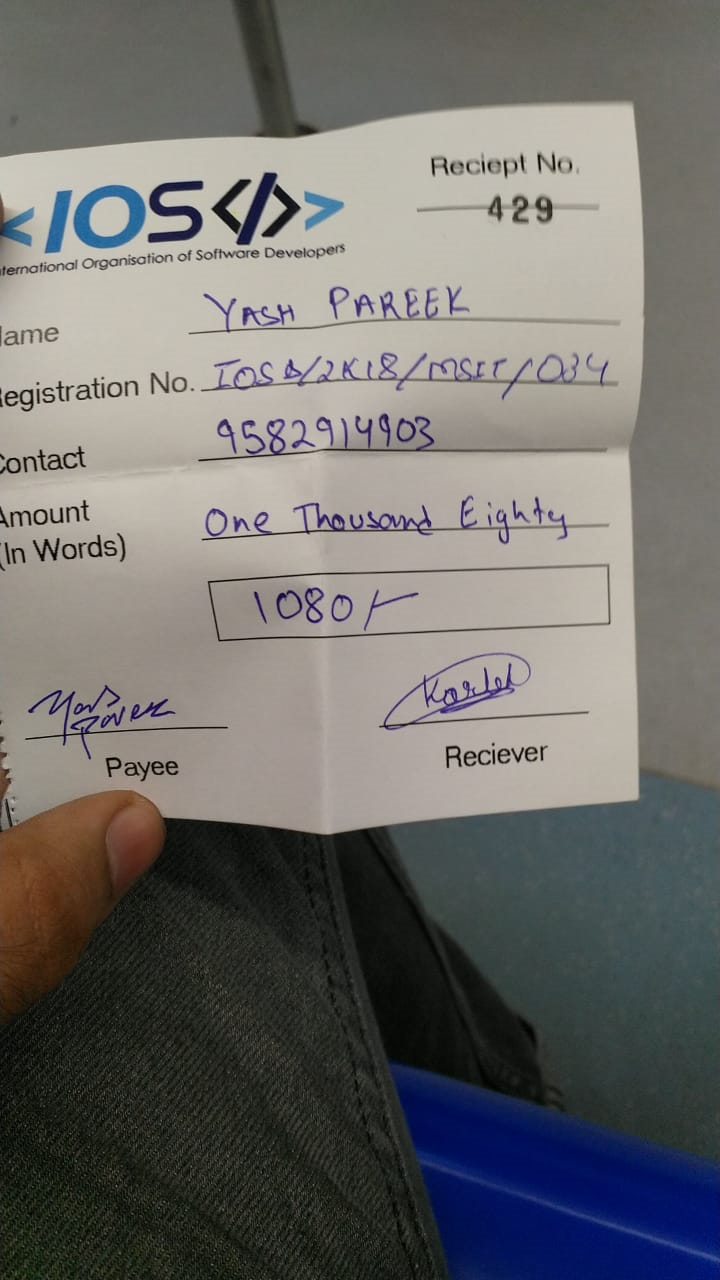 Reciept No.
429
<IOS</>>
nternational Organisation of Software Developers
ame YASH PAREEK
egistration No. IOSD/2K18/MSIT/034
Contact 9582914903
Amount
(In Words) One Thousand Eighty
1080/-
Yash
Pareek
Payee
Reciever